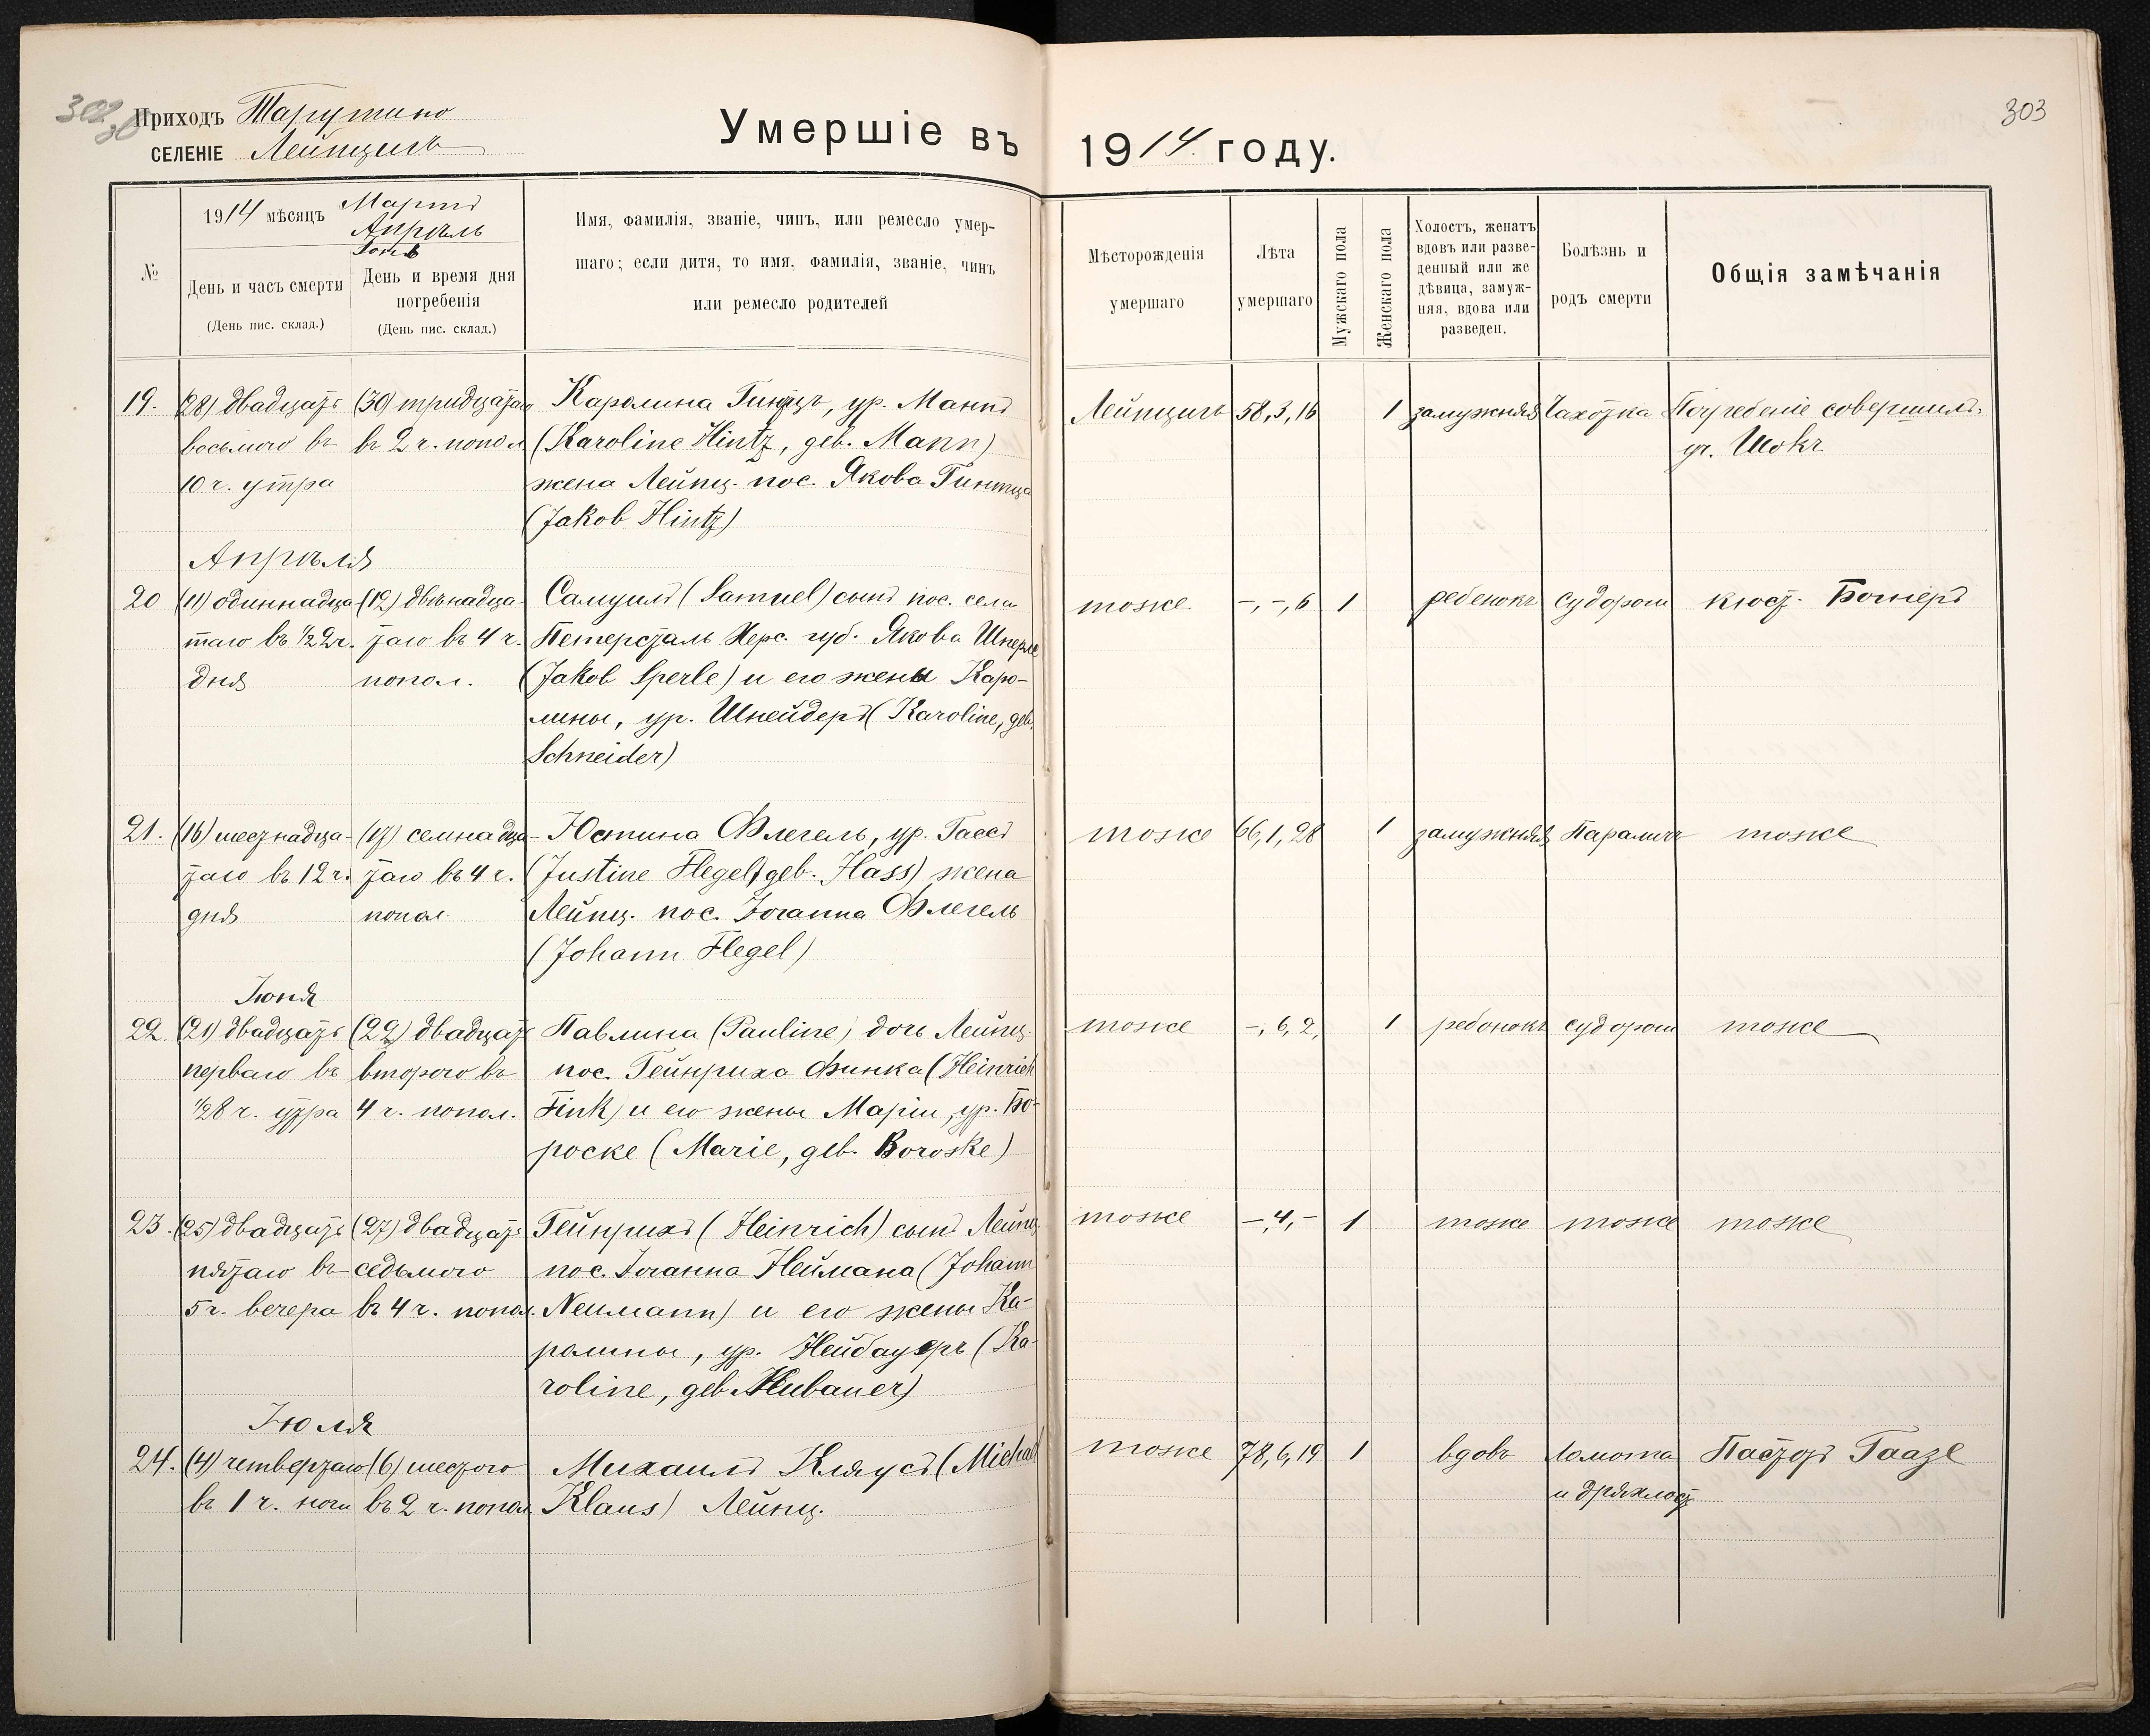 302
30
303
Приходъ Тарутино
СЕЛЕНІЕ Лейпцигъ
Умершіе въ 1914 году.
№
1914 мѣсяцъ Мартъ
Апрѣль
День и часъ смерти
(День пис. склад.)
День и время дня
погребенія
(День пис. склад.)
Имя, фамилія, званіе, чинъ, или ремесло умер-
шаго; если дитя, то имя, фамилія, званіе, чинъ
или ремесло родителей
Мѣсторожденія
умершаго
Лѣта
умершаго
Мужскаго пола
Женскаго пола
Холостъ, женатъ
вдовъ или разве-
денный или же
дѣвица, замуж-
няя, вдова или
разведен.
Болѣзнь и
родъ смерти
Общія замѣчанія
19. (28) двадцать (30) тридцатаго Каролина Гинцъ, ур. Маннъ Лейпцигъ 58,3,16 1 замужняя Чахотка Погребеніе совершилъ,
восьмого въ въ 2 ч. попол (Karoline Hintz, geb. Mann) уч. Шокъ
10 ч. утра жена Лейпц. пос. Якова Гинтца
(Jakob Hintz)
Апрѣля
20 (11) одиннадца- (12) двѣнадца- Самуилъ (Samuel) сынъ пос. села тоже. -,-,6 1 ребенокъ судороги кюст. Ботнеръ
таго въ ½2 ч. таго въ 4 ч. Петерсталь Херс. губ. Якова Шперле
дня попол. (Jakob Sperle) и его жены Каро-
лины, ур. Шнейдеръ (Karoline, geb.
Schneider)
21. (16) шестнадца- (17) семнадца- Юстина Флегель, ур. Гассъ тоже 66,1,28 1 замужняя Параличъ тоже
таго въ 12 ч. таго въ 4 ч. (Justine Flegel, geb. Hass) жена
дня попол. Лейпц. пос. Іоганна Флегель
(Johann Flegel)
Іюня
22. (21) двадцать (22) двадцать Павлина (Pauline) дочь Лейпц. тоже -,6,2, 1 ребенокъ судороги тоже
перваго въ второго въ пос. Гейнриха Финка (Heinrich
½8 ч. утра 4 ч. попол. Fink) и его жены Маріи, ур. Бо-
роске (Marie, geb. Boroske)
23. (25) двадцать (27) двадцать Гейнрихъ (Heinrich) сынъ Лейпц. тоже -,4,- 1 тоже тоже тоже
пятаго въ седьмого пос. Іоганна Неймана (Johann
5 ч. вечера въ 4 ч. попол. Neumann) и его жены Ка-
ролины, ур. Нейбауеръ (Ka-
roline, geb. Neubauer)
Іюля
24. (4) четвертаго (6) шестого Михаилъ Клаусъ (Michael тоже 78,6,19 1 вдовъ Ломота Пасторъ Гаазе
въ 1 ч. ночи въ 2 ч. попол Klaus) Лейпц. и дряхлость